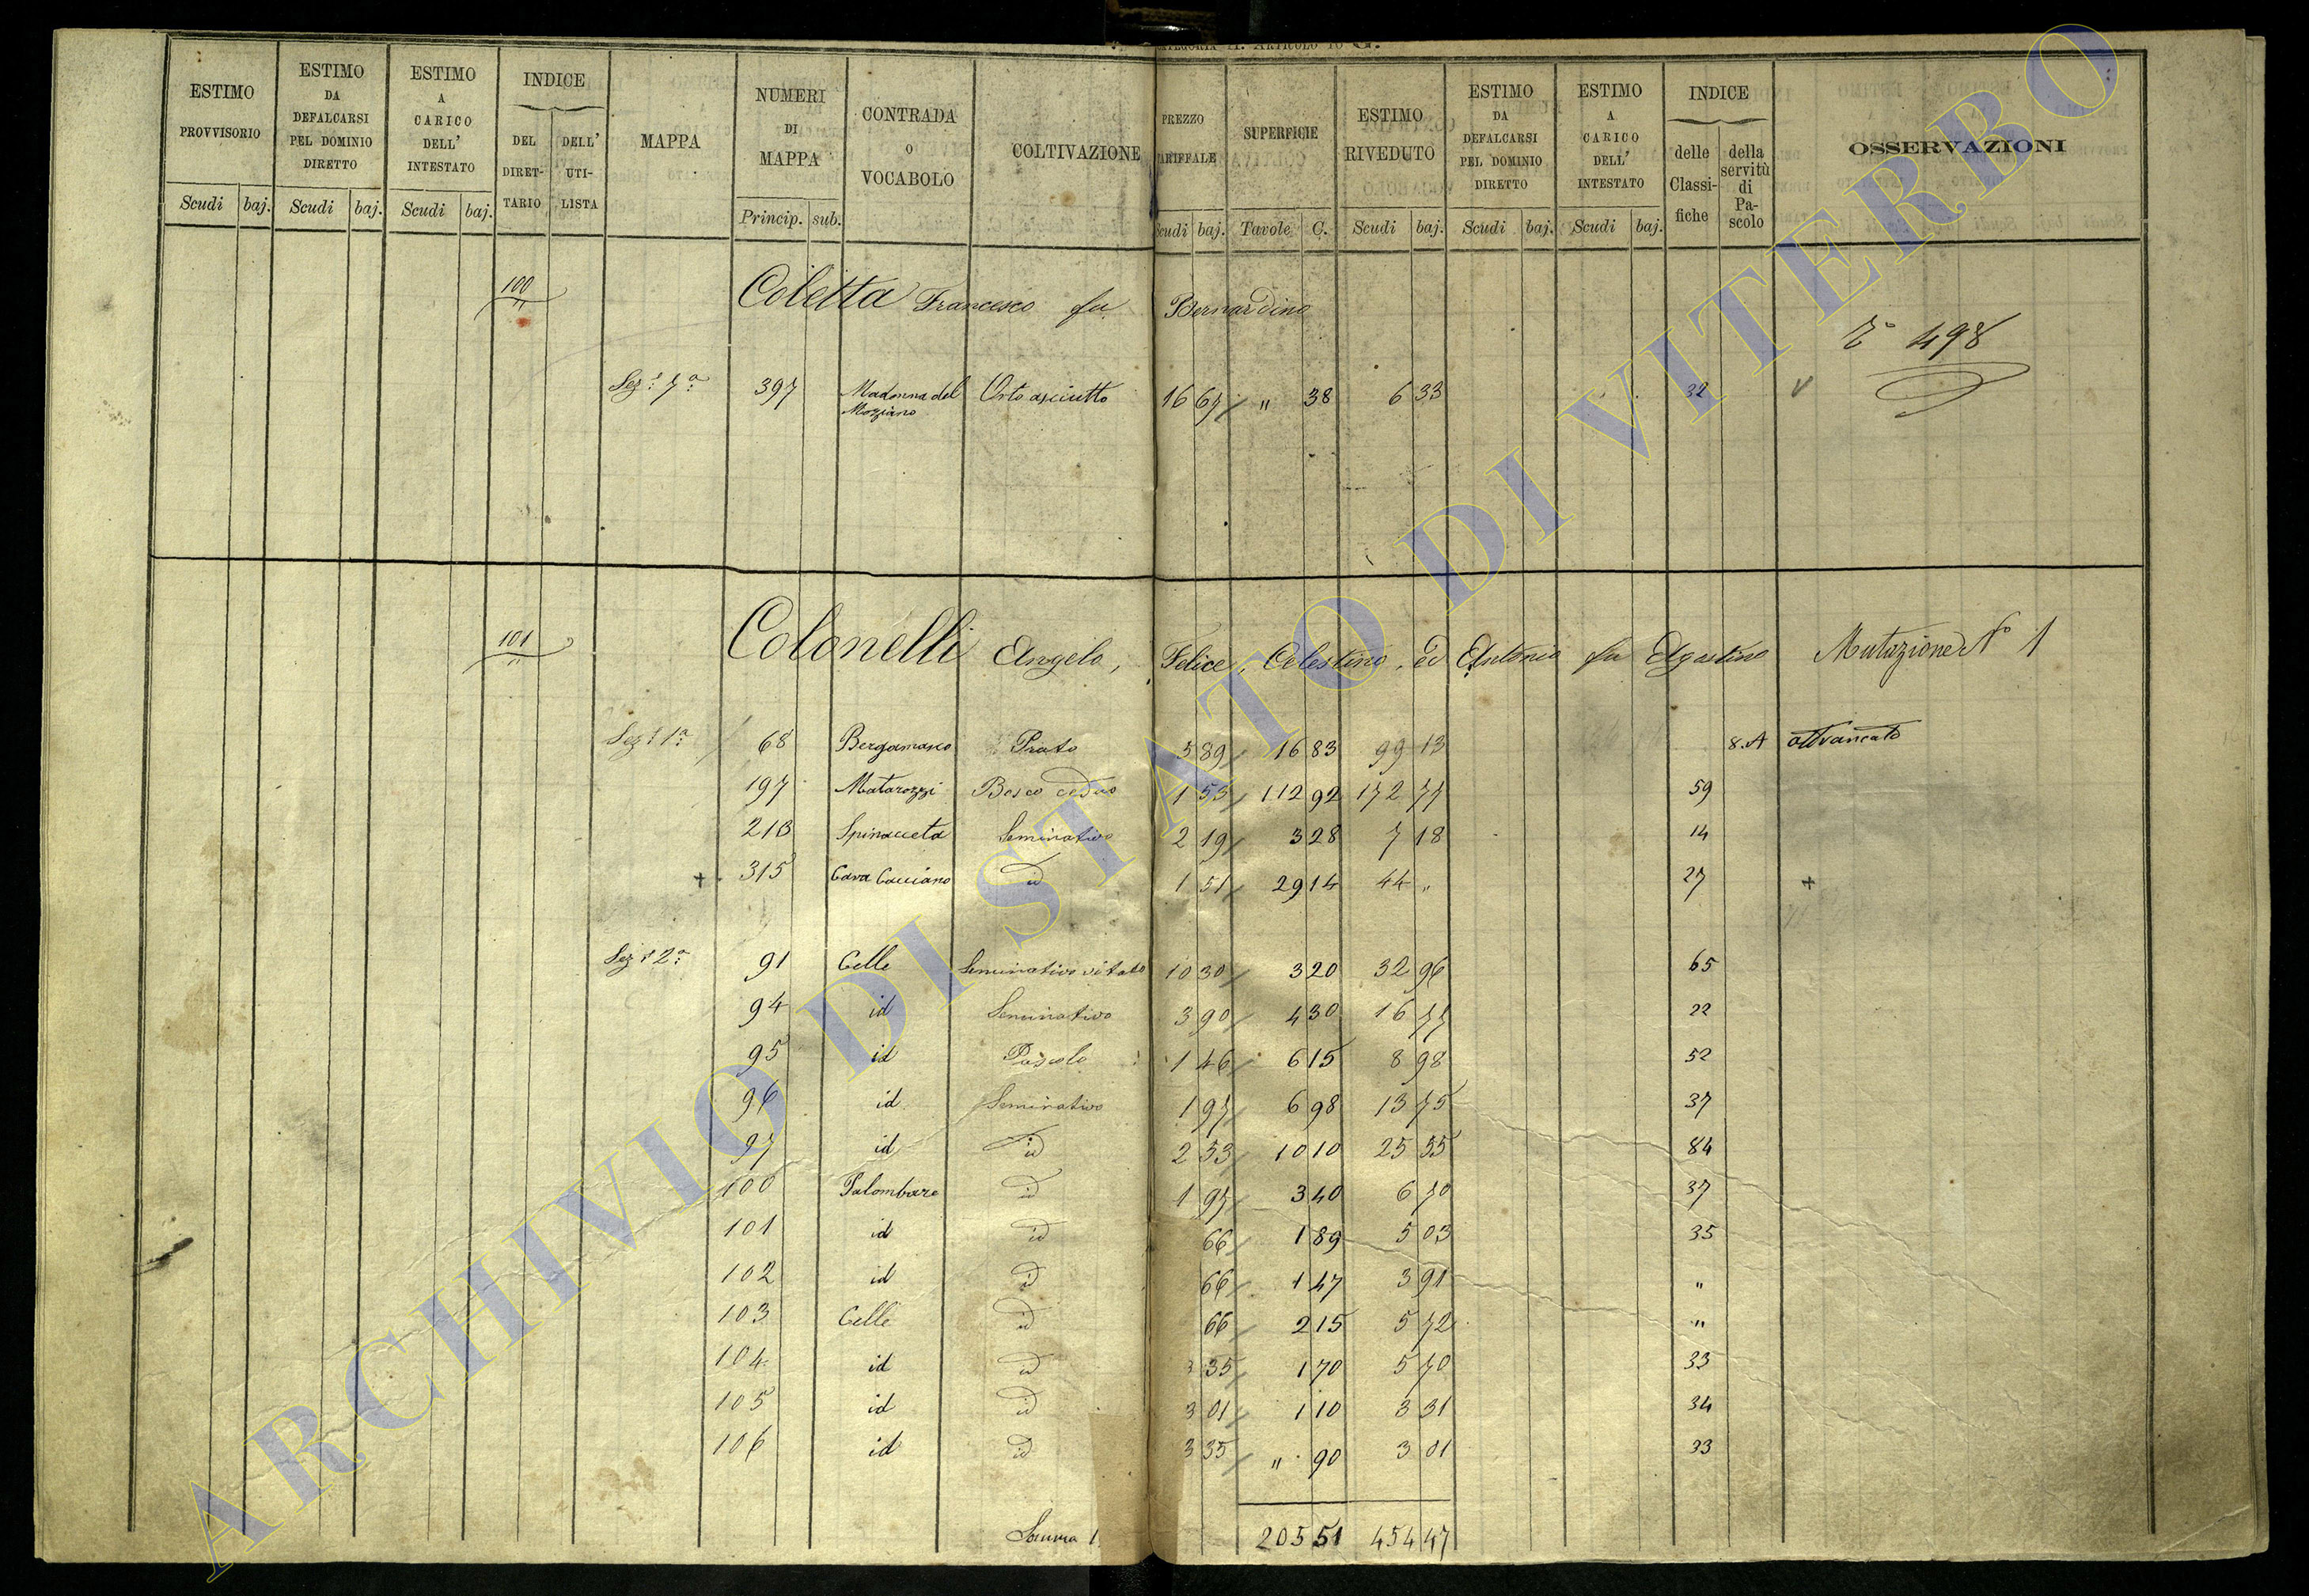 ESTIMO PROVVISORIO Scudi baj.
ESTIMO DA DEFALCARSI PEL DOMINIO DIRETTO Scudi baj.
ESTIMO A CARICO DELL' INTESTATO Scudi baj.
INDICE DEL DIRETTARIO DELL' UTILISTA
MAPPA
NUMERI DI MAPPA Princip. sub.
CONTRADA O VOCABOLO
COLTIVAZIONE
ARTICOLO 10 G.
PREZZO TARIFFALE Scudi baj.
SUPERFICIE Tavole C.
ESTIMO RIVEDUTO Scudi baj.
ESTIMO DA DEFALCARSI PEL DOMINIO DIRETTO Scudi baj.
ESTIMO A CARICO DELL' INTESTATO Scudi baj.
INDICE delle Classifiche della servitù di Pascolo
OSSERVAZIONI
100 Coletta Francesco fu Bernardino
498
Sez.e 7a 397 Madonna del Mozziano Orto asciutto 16 67 " 38 6 33 32
101 Colonelli Angelo, Felice, Celestino, ed Antonio fu Agostino Mutazione No 1
Sez.e 1a 68 Bergamasco Prato 5 89 16 83 99 13 8.A
197 Matarozzi Bosco ceduo 1 53 112 92 172 77 59
213 Spinacceta Seminativo 2 19 3 28 7 18 14
+ 315 Cava Cacciano id 1 51 29 14 44 " 27 +
Sez.e 2a 91 Celle Seminativo vitato 10 30 3 20 32 96 65
94 id Seminativo 3 90 4 30 16 77 22
95 id Pascolo 1 46 6 15 8 98 52
96 id Seminativo 1 97 6 98 13 75 37
97 id id 2 53 10 10 25 55 84
100 Palombaro id 1 97 3 40 6 70 37
101 id id 66 1 89 5 03 35
102 id id 66 1 47 3 91 "
103 Celle id 66 2 15 5 72 "
104 id id 3 35 1 70 5 70 33
105 id id 3 01 1 10 3 31 34
106 id id 3 35 " 90 3 01 33
Somma 205 51 454 47
ARCHIVIO DI STATO DI VITERBO